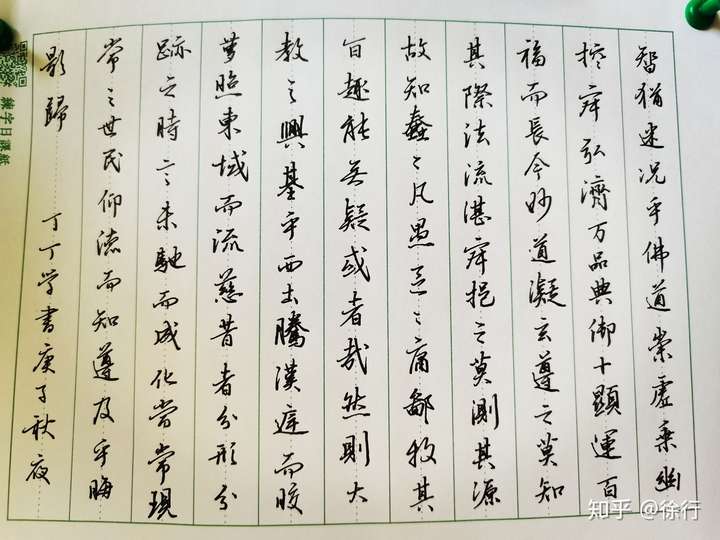 智猶迷况乎佛道崇虛乘幽
控寂弘濟万品典御十顯運百
福而長今妙道凝玄遵之莫知
其際法流湛寂挹之莫測其源
故知蠢々凡愚區々庸鄙投其
旨趣能无疑或者哉然則大
教之興基乎西土騰漢庭而皎
夢照東域而流慈昔者分形分
跡之時言未馳而成化當常現
常之世民仰德而知遵及乎晦
影歸 丁丁學書庚子秋夜
練字日課紙
知乎 @徐行